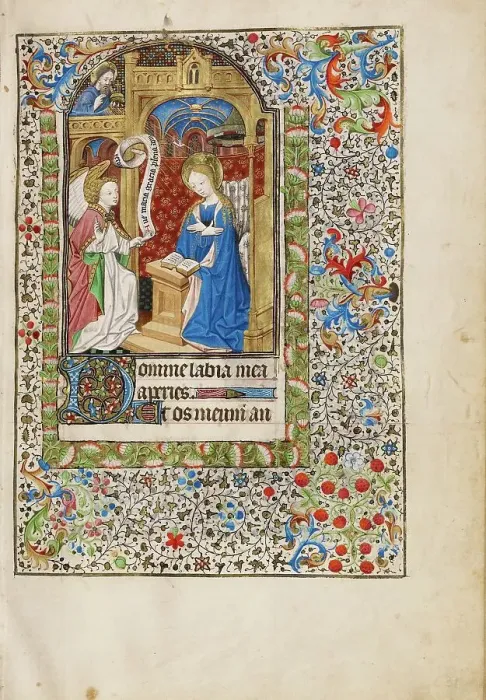 Aue maria gracia plena
Domine labia mea
apries.
Et os meum an